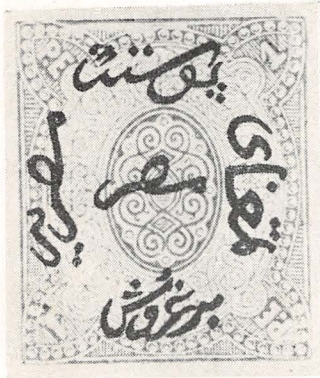 پوسته
تمغای
مصر
مصريه
بر غروش